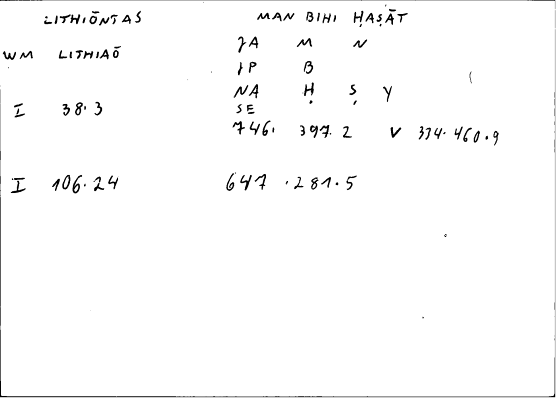 LITHIŌNTAS MAN BIHI ḤAṢĀT
WM LITHIAŌ
JA M N
JP B
NA Ḥ Ṣ Y
SE
I 38.3 746. 397.2 V 334.460.9
I 106.24 647 .281.5